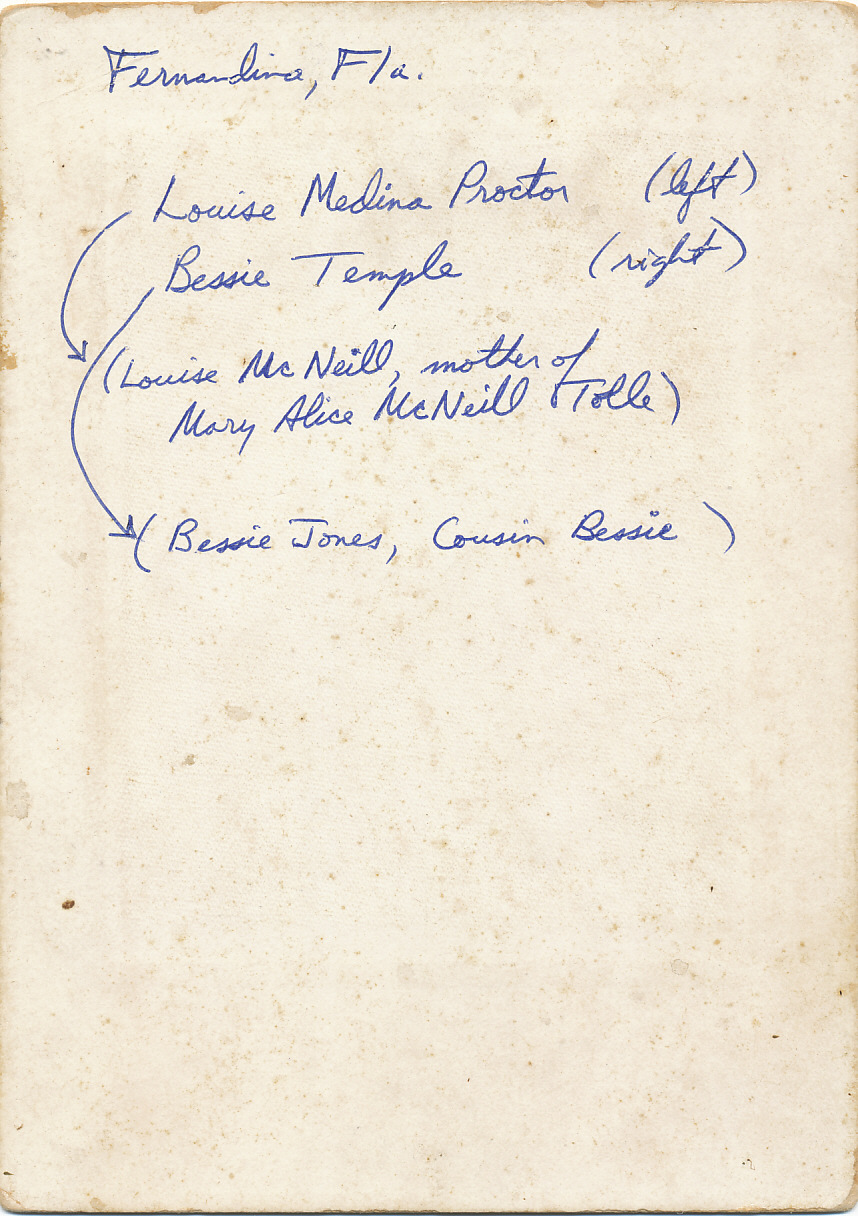 Fernandina, Fla.
Louise Medina Proctor (left)
Bessie Temple (right)
(Louise McNeill, mother of
Mary Alice McNeill Tolle)
(Bessie Jones, Cousin Bessie)